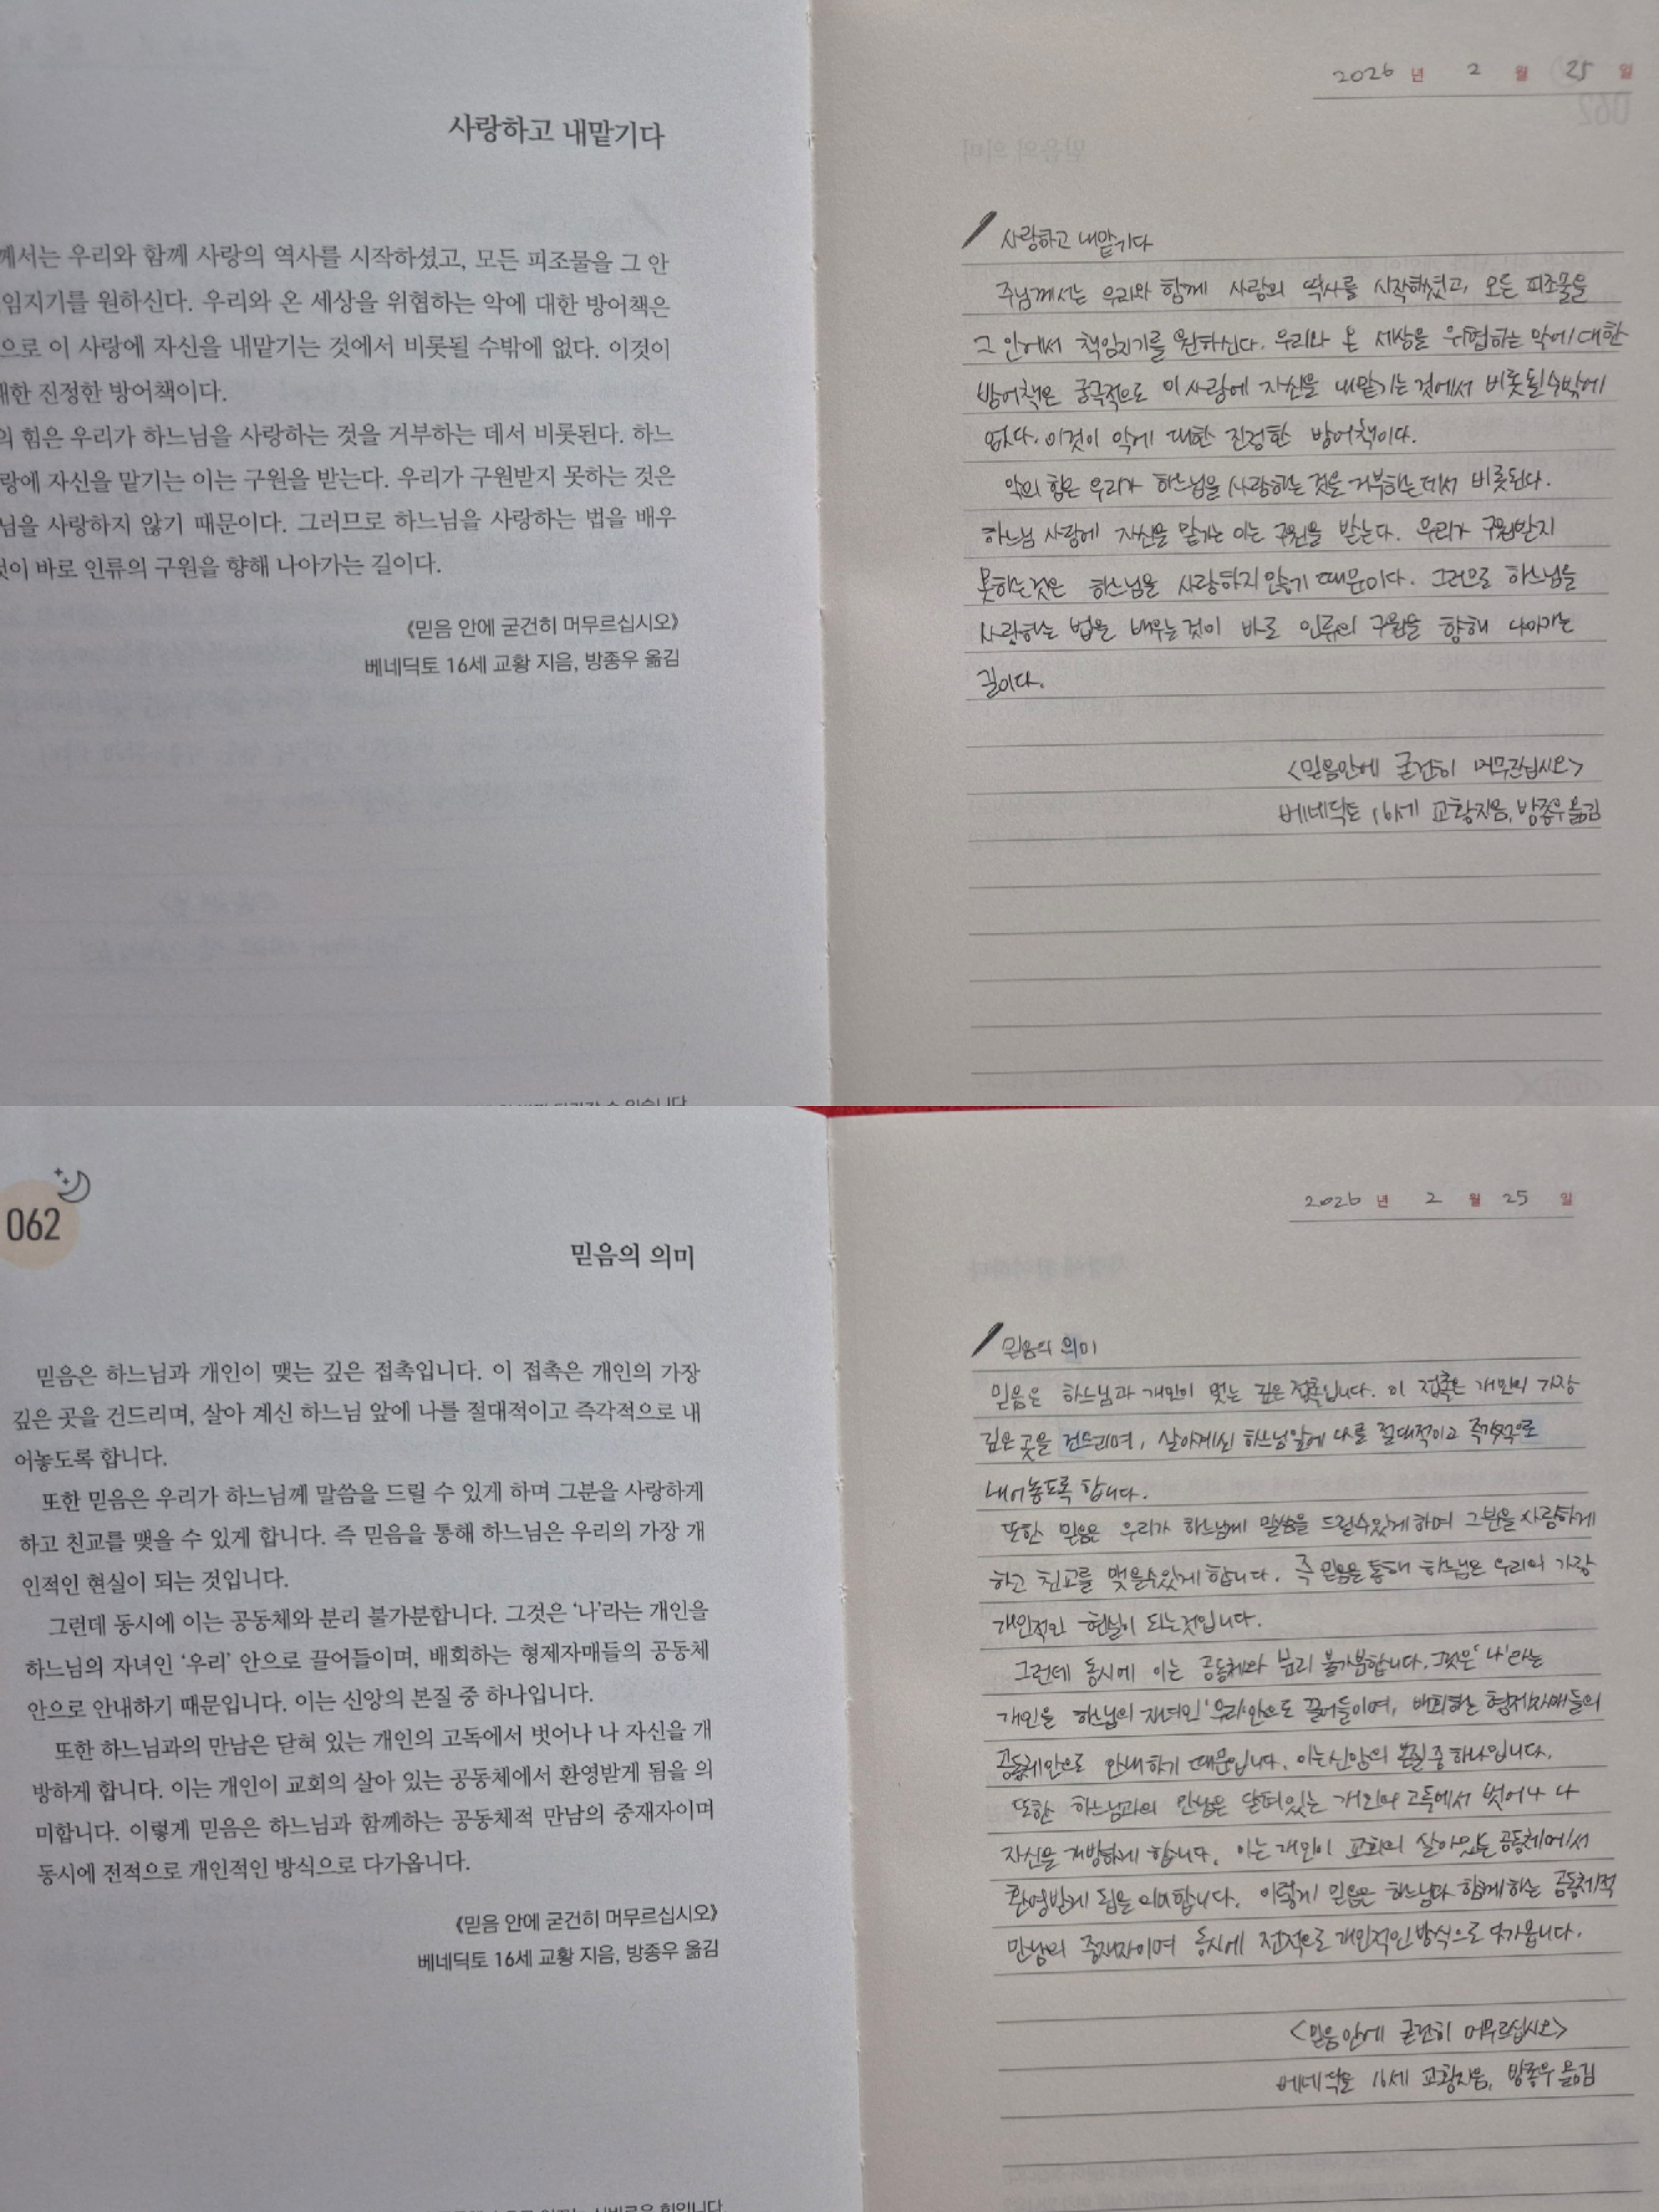 사랑하고 내맡기다
께서는 우리와 함께 사랑의 역사를 시작하셨고, 모든 피조물을 그 안
임지기를 원하신다. 우리와 온 세상을 위협하는 악에 대한 방어책은
으로 이 사랑에 자신을 내맡기는 것에서 비롯될 수밖에 없다. 이것이
대한 진정한 방어책이다.
의 힘은 우리가 하느님을 사랑하는 것을 거부하는 데서 비롯된다. 하느
랑에 자신을 맡기는 이는 구원을 받는다. 우리가 구원받지 못하는 것은
님을 사랑하지 않기 때문이다. 그러므로 하느님을 사랑하는 법을 배우
것이 바로 인류의 구원을 향해 나아가는 길이다.
《믿음 안에 굳건히 머무르십시오》
베네딕토 16세 교황 지음, 방종우 옮김
2026 년 2 월 25 일
사랑하고 내맡기다
주님께서는 우리와 함께 사랑의 역사를 시작하셨고, 모든 피조물을
그 안에서 책임지기를 원하신다. 우리와 온 세상을 위협하는 악에 대한
방어책은 궁극적으로 이 사랑에 자신을 내맡기는 것에서 비롯될 수밖에
없다. 이것이 악에 대한 진정한 방어책이다.
악의 힘은 우리가 하느님을 사랑하는 것을 거부하는 데서 비롯된다.
하느님 사랑에 자신을 맡기는 이는 구원을 받는다. 우리가 구원받지
못하는 것은 하느님을 사랑하지 않기 때문이다. 그러므로 하느님을
사랑하는 법을 배우는 것이 바로 인류의 구원을 향해 나아가는
길이다.
<믿음안에 굳건히 머무르십시오>
베네딕토 16세 교황지음, 방종우 옮김
062
믿음의 의미
믿음은 하느님과 개인이 맺는 깊은 접촉입니다. 이 접촉은 개인의 가장
깊은 곳을 건드리며, 살아 계신 하느님 앞에 나를 절대적이고 즉각적으로 내
어놓도록 합니다.
또한 믿음은 우리가 하느님께 말씀을 드릴 수 있게 하며 그분을 사랑하게
하고 친교를 맺을 수 있게 합니다. 즉 믿음을 통해 하느님은 우리의 가장 개
인적인 현실이 되는 것입니다.
그런데 동시에 이는 공동체와 분리 불가분합니다. 그것은 '나'라는 개인을
하느님의 자녀인 '우리' 안으로 끌어들이며, 배회하는 형제자매들의 공동체
안으로 안내하기 때문입니다. 이는 신앙의 본질 중 하나입니다.
또한 하느님과의 만남은 닫혀 있는 개인의 고독에서 벗어나 나 자신을 개
방하게 합니다. 이는 개인이 교회의 살아 있는 공동체에서 환영받게 됨을 의
미합니다. 이렇게 믿음은 하느님과 함께하는 공동체적 만남의 중재자이며
동시에 전적으로 개인적인 방식으로 다가옵니다.
《믿음 안에 굳건히 머무르십시오》
베네딕토 16세 교황 지음, 방종우 옮김
2026 년 2 월 25 일
믿음의 의미
믿음은 하느님과 개인이 맺는 깊은 접촉입니다. 이 접촉은 개인의 가장
깊은 곳을 건드리며, 살아계신 하느님앞에 나를 절대적이고 즉각적으로
내어놓도록 합니다.
또한 믿음은 우리가 하느님께 말씀을 드릴수있게하며 그분을 사랑하게
하고 친교를 맺을수있게 합니다. 즉 믿음을 통해 하느님은 우리의 가장
개인적인 현실이 되는것입니다.
그런데 동시에 이는 공동체와 분리 불가분합니다. 그것은 '나'라는
개인을 하느님의 자녀인 '우리'안으로 끌어들이며, 배회하는 형제자매들의
공동체안으로 안내하기 때문입니다. 이는신앙의 본질중 하나입니다.
또한 하느님과의 만남은 닫혀있는 개인의 고독에서 벗어나 나
자신을 개방하게 합니다. 이는 개인이 교회의 살아있는 공동체에서
환영받게 됨을 의미합니다. 이렇게 믿음은 하느님과 함께하는 공동체적
만남의 중재자이며 동시에 전적으로 개인적인 방식으로 다가옵니다.
<믿음안에 굳건히 머무르십시오>
베네딕토 16세 교황지음, 방종우 옮김